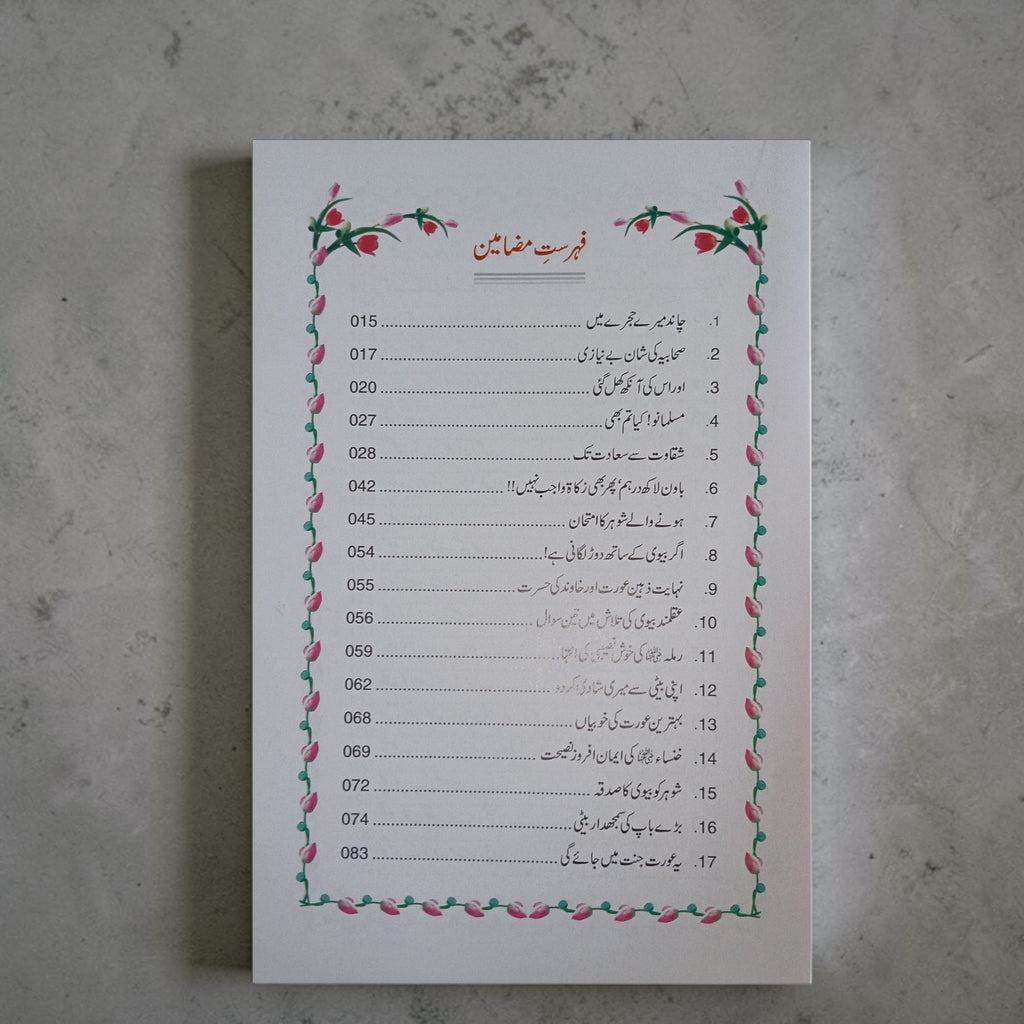 فہرستِ مضامین
1. چاند میرے حجرے میں ............ 015
2. صحابیہ کی شان بے نیازی ............ 017
3. اور اس کی آنکھ کھل گئی ............ 020
4. مسلمانو! کیا تم بھی ............ 027
5. شقاوت سے سعادت تک ............ 028
6. باون لاکھ درہم‘ پھر بھی زکاۃ واجب نہیں!! ............ 042
7. ہونے والے شوہر کا امتحان ............ 045
8. اگر بیوی کے ساتھ دوڑ لگانی ہے! ............ 054
9. نہایت ذہین عورت اور خاوند کی حسرت ............ 055
10. عقلمند بیوی کی تلاش میں تین سوال ............ 056
11. رملہ رضی اللہ عنہا کی خوش نصیبی کی انتہا ............ 059
12. اپنی بیٹی سے میری شادی کر دو ............ 062
13. بہترین عورت کی خوبیاں ............ 068
14. خنساء رضی اللہ عنہا کی ایمان افروز نصیحت ............ 069
15. شوہر کو بیوی کا صدقہ ............ 072
16. بڑے باپ کی سمجھدار بیٹی ............ 074
17. یہ عورت جنت میں جائے گی ............ 083